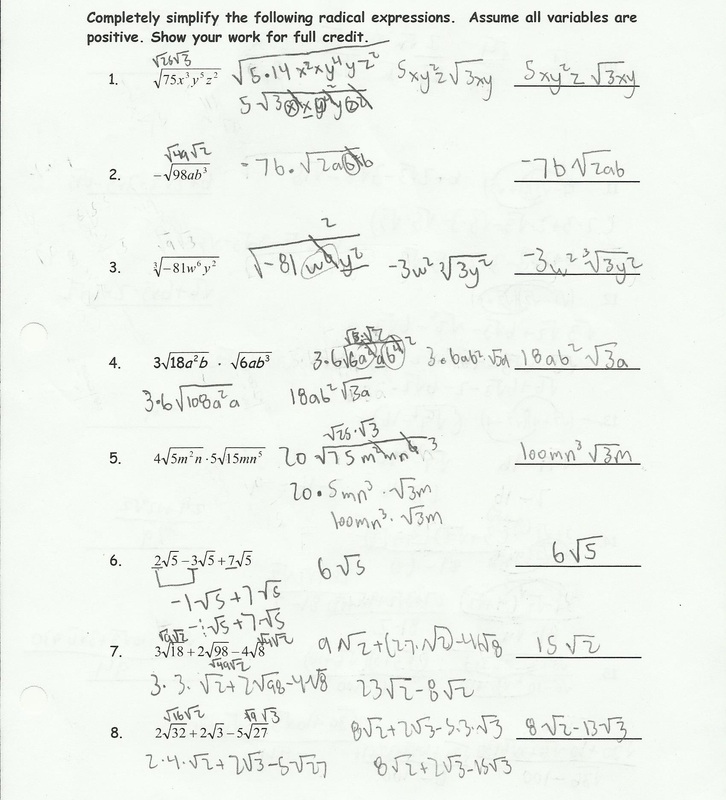 Completely simplify the following radical expressions. Assume all variables are
positive. Show your work for full credit.
√25√3
1. √75x³y⁵z² √5·14x²xy⁴yz² 5xy²z√3xy 5xy²z√3xy
√49√2
2. -√98ab³ -7b·√2ab -7b√2ab
3. ∛-81w⁶y² -3w²∛3y² -3w²∛3y²
4. 3√18a²b · √6ab³ 18ab²√3a
3·6√108a²a 18ab²√3a
√25·√3
5. 4√5m²n·5√15mn⁵ 20√75m²mn⁶ 100mn³√3m
20·5mn³·√3m
100mn³·√3m
6. 2√5-3√5+7√5 6√5 6√5
-1√5+7√5
-1√5+7√5
√9√2 √4√2
7. 3√18+2√98-4√8 15√2
√49√2
3·3·√2+2√98-4√8 23√2-8√2
√16√2 √9√3
8. 2√32+2√3-5√27 8√2+2√3-5·3·√3 8√2-13√3
2·4·√2+2√3-5√27 8√2+2√3-15√3